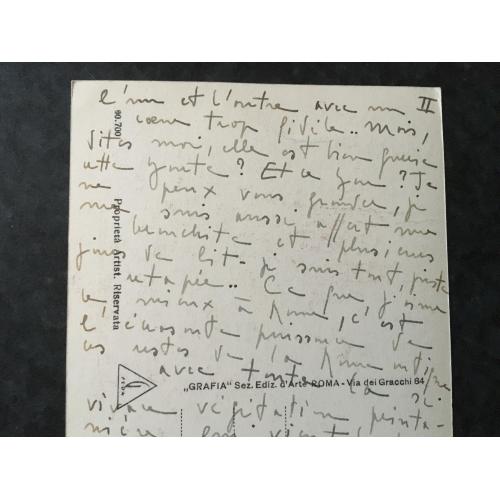 II
l'un et l'autre avec un
cœur trop fidèle.. mais,
dites moi, elle est bien guérie
cette goutte? Et ce genou? Je
ne peux vous gronder, je
me suis aussi offert une
bronchite et plusieurs
jours de lit - je suis tout juste
retapée.. Ce que j'aime
le mieux à Rome, c'est
l'écrasante puissance de
ces restes de la Rome antique
avec toute la si
vivace végétation printa-
nière
90.700
Proprietà Artist. Riservata
„GRAFIA" Sez. Ediz. d'Arte ROMA - Via dei Gracchi 64